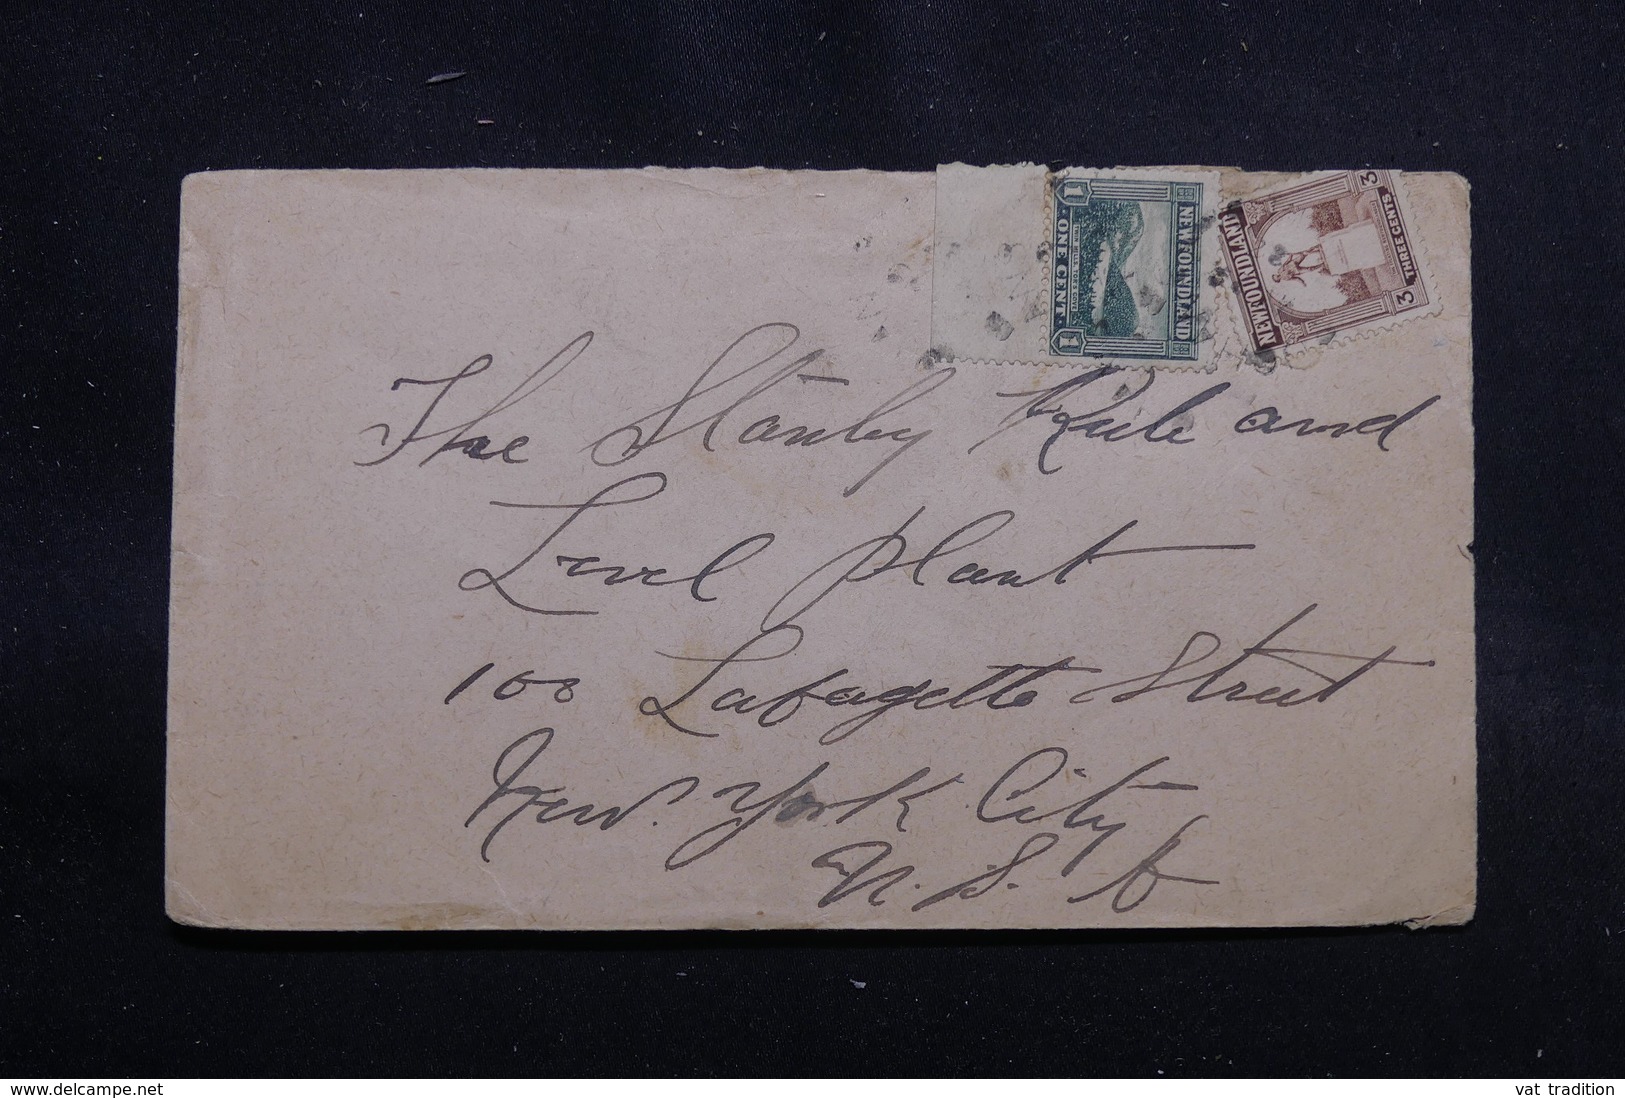 NEWFOUNDLAND
TWIN HILLS, TOR'S COVE
1 · ONE CENT · 1
NEWFOUNDLAND
3 THREE CENTS 3
The Stanley Rule and
Level Plant
100 Lafayette Street
New York City
U. S. A
www.delcampe.net
vat tradition